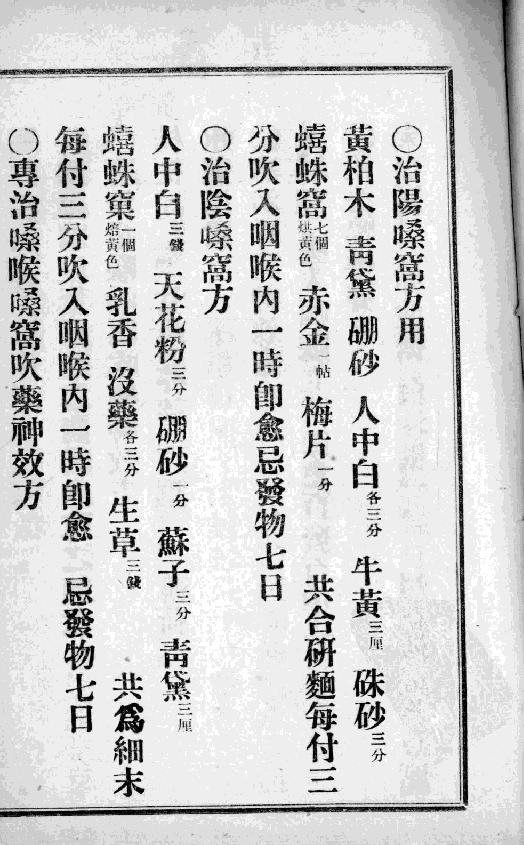 〇治陽嗓窩方用
黃柏木 靑黛 硼砂 人中白各三分 牛黃三厘 硃砂三分
蟢蛛窩七個烘黃色 赤金一帖 梅片一分 共合硏麵每付三
分吹入咽喉內一時卽愈忌發物七日
〇治陰嗓窩方
人中白三錢 天花粉三分 硼砂一分 蘇子三分 靑黛三厘
蟢蛛窠一個焙黃色 乳香 沒藥各三分 生草三錢 共爲細末
每付三分吹入咽喉內一時卽愈 忌發物七日
〇專治嗓喉嗓窩吹藥神效方